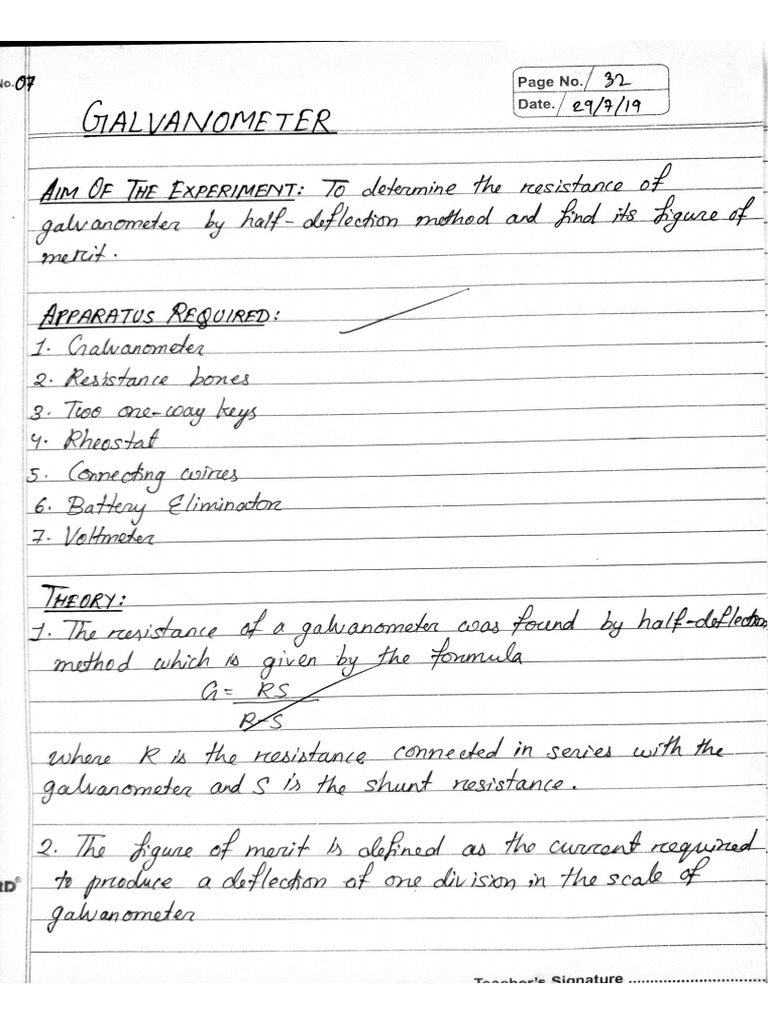 No. 07
Page No. 32
Date. 29/7/19
GALVANOMETER
AIM OF THE EXPERIMENT: To determine the resistance of
galvanometer by half-deflection method and find its figure of
merit.
APPARATUS REQUIRED:
1. Galvanometer
2. Resistance boxes
3. Two one-way keys
4. Rheostat
5. Connecting wires
6. Battery Eliminator
7. Voltmeter
THEORY:
1. The resistance of a galvanometer was found by half-deflection
method which is given by the formula
G = RS
R-S
where R is the resistance connected in series with the
galvanometer and S is the shunt resistance.
2. The figure of merit is defined as the current required
to produce a deflection of one division in the scale of
galvanometer
RD®
Teacher's Signature